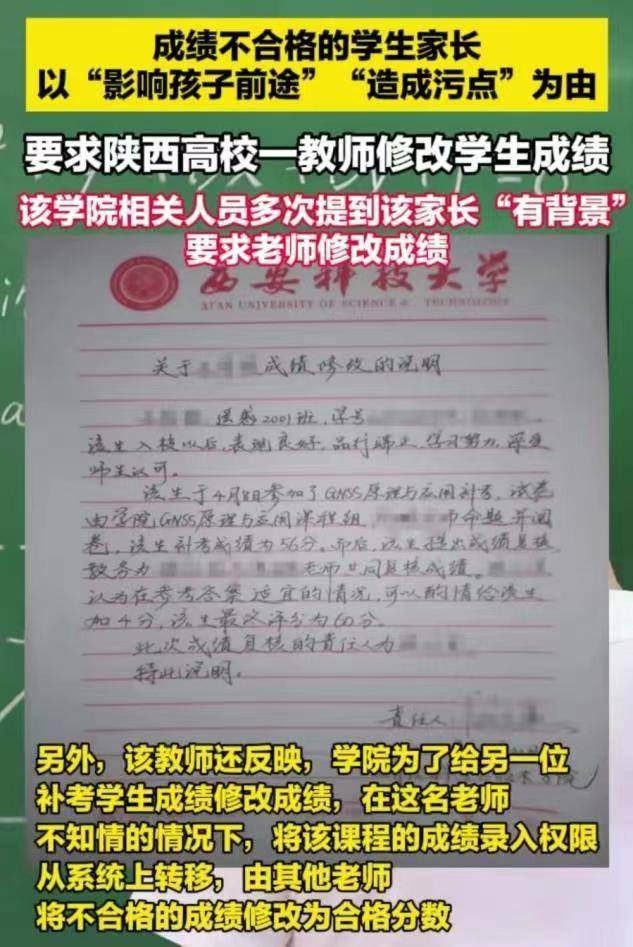 成绩不合格的学生家长
以“影响孩子前途”“造成污点”为由
要求陕西高校一教师修改学生成绩
该学院相关人员多次提到该家长“有背景”
要求老师修改成绩
西安科技大学
XI'AN UNIVERSITY OF SCIENCE & TECHNOLOGY
关于 成绩修改的说明
遥感2001班，学号
该生入校以后，表现良好，品行端正，学习努力，深受
师生认可。
该生于4月8日参加了GNSS原理与应用补考，试卷
由学院GNSS原理与应用课程组 命题并阅
卷，该生补考成绩为56分。而后，该生提出成绩复核
教务办 老师共同复核成绩。
认为在参考答案适宜的情况，可以酌情给该生
加4分，该生最终评分为60分。
此次成绩复核的责任人为
特此说明。
责任人
另外，该教师还反映，学院为了给另一位
补考学生成绩修改成绩，在这名老师
不知情的情况下，将该课程的成绩录入权限
从系统上转移，由其他老师
将不合格的成绩修改为合格分数